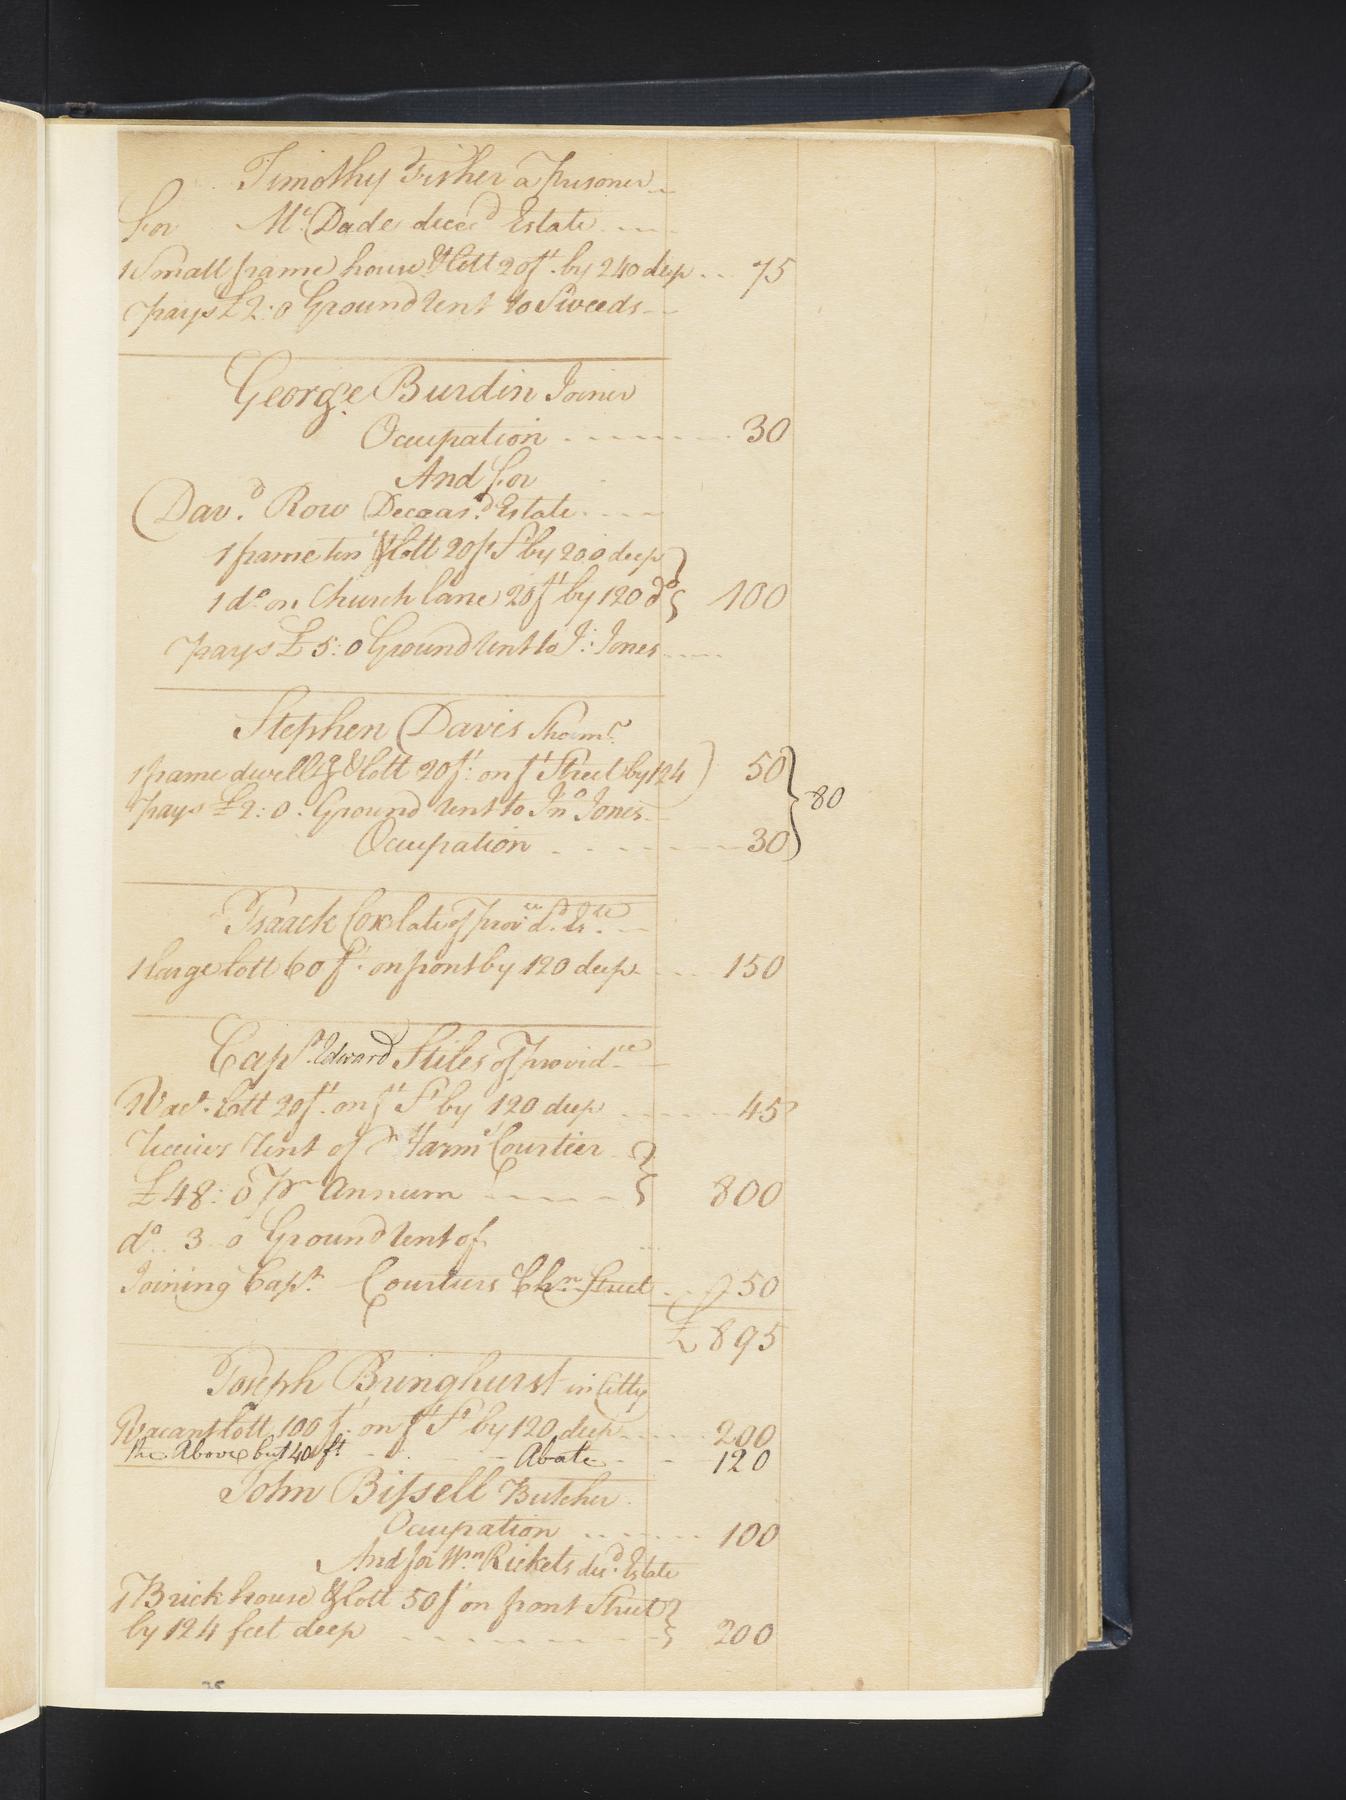 Timothy Fisher a prisoner
for Mc. Dade deced Estate
1 Small frame house & lott 20 ft. by 240 deep 75
pays £2:0 Ground Rent to Sweeds
George Burdin Joiner
Occupation 30
And for
Davd. Row Deceasd. Estate
1 frame ten & lott 20 ft St by 200 deep
1 do. on Church lane 20 ft by 120 do 100
pays £5:0 Ground Rent to J: Jones
Stephen Davis Shoemr.
1 frame dwellg & lott 20 ft. on ft Street by 124 50
80
pays £2:0. Ground Rent to Jno Jones
Occupation 30
Isaack Cox late of provice. d. Este.
1 large lott 60 ft. on front by 120 deep 150
Capt. Edward Stiles of provid.ce
1 Vact. lott 20 ft. on ft St by 120 deep 45
Receives Rent of Harmn Courtier
£48:0 Pr Annum 800
do. 3 0 Ground Rent of
Joining Capt. Courtiers Chn Street 50
£ 895
Joseph Bringhurst in Citty
Vacant lott 100 ft. on ft St by 120 deep 200
the Above but 40 ft Abate 120
John Bissell Butcher
Occupation 100
And for Wm Rickets decd. Estate
1 Brick house & lott 50 ft on front Street
by 124 feet deep 200